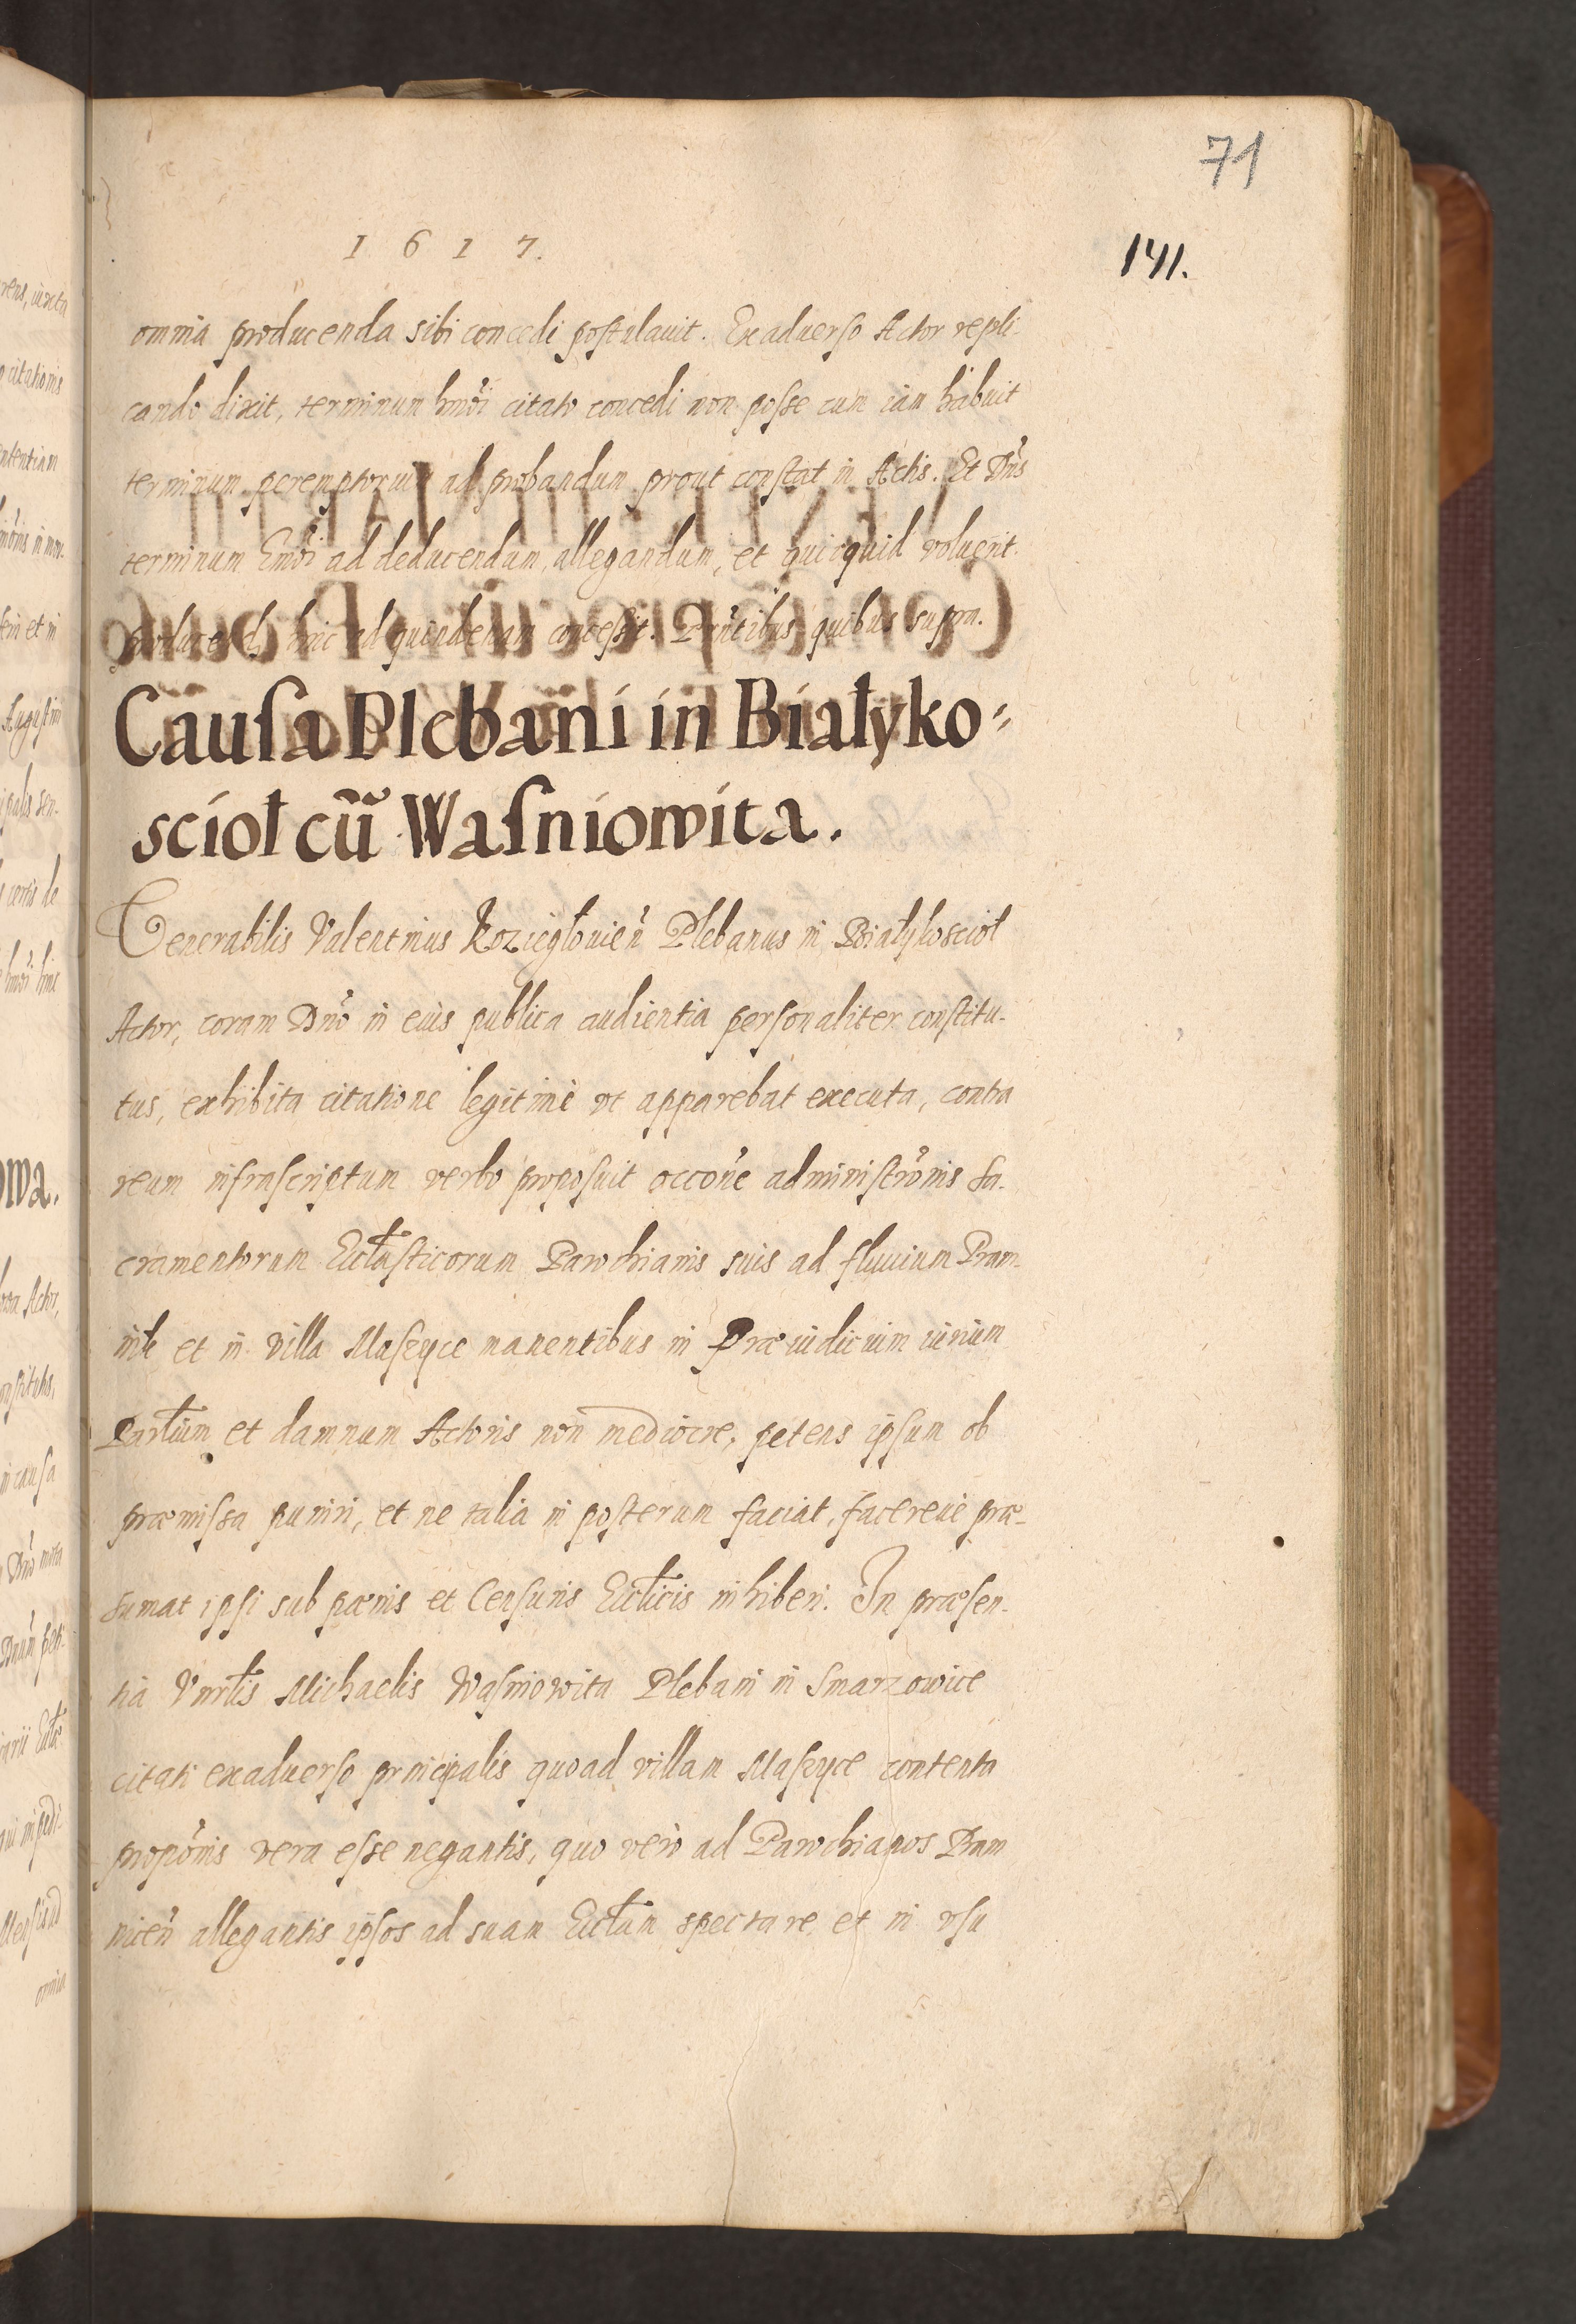 71
1617.
141.
omnia producenda sibi concedi postulauit. Ex aduerso Actor repli-
cando dixit, terminum hmõi citato concedi non posse cum iam habuit
terminum peremptorium ad probandum prout constat in Actis. Et Dñs
terminum hmõi ad deducendum, allegandum, et quicquid voluerit
hinc ad quindenam concessit. Pñtibus quibus supra.
Causa Plebani in Białyko-
scioł cũ Wasniowita.
Venerabilis Valentinus Koziegłouień Plebanus in Białykoscioł
Actor, coram Dño in eius publica audientia personaliter constitu-
tus, exhibita citatione legitimè vt apparebat executa, contra
reum infrascriptum verbo proposuit occõne administrõnis sa-
cramentorum Ecclãsticorum Parochianis suis ad fluuium Pram-
nik et in villa Maszyce manentibus in Præiudicium iurium
Parłium et damnum Actoris non mediocre, petens ipsum ob
præmissa puniri, et ne talia in posterum faciat, facereue præ-
sumat ipsi sub pœnis et Censuris Ecctłicis inhiberi. In præsen-
tia Vnrłlis Michaelis Wasniowita Plebani in Smarzowice
citati ex aduerso principalis quoad villam Maszyce contenta
propõnis vera esse negantis, quo verò ad Parochianos Pram
niceñ allegantis ipsos ad suam Ecctłam spectare et in vsu